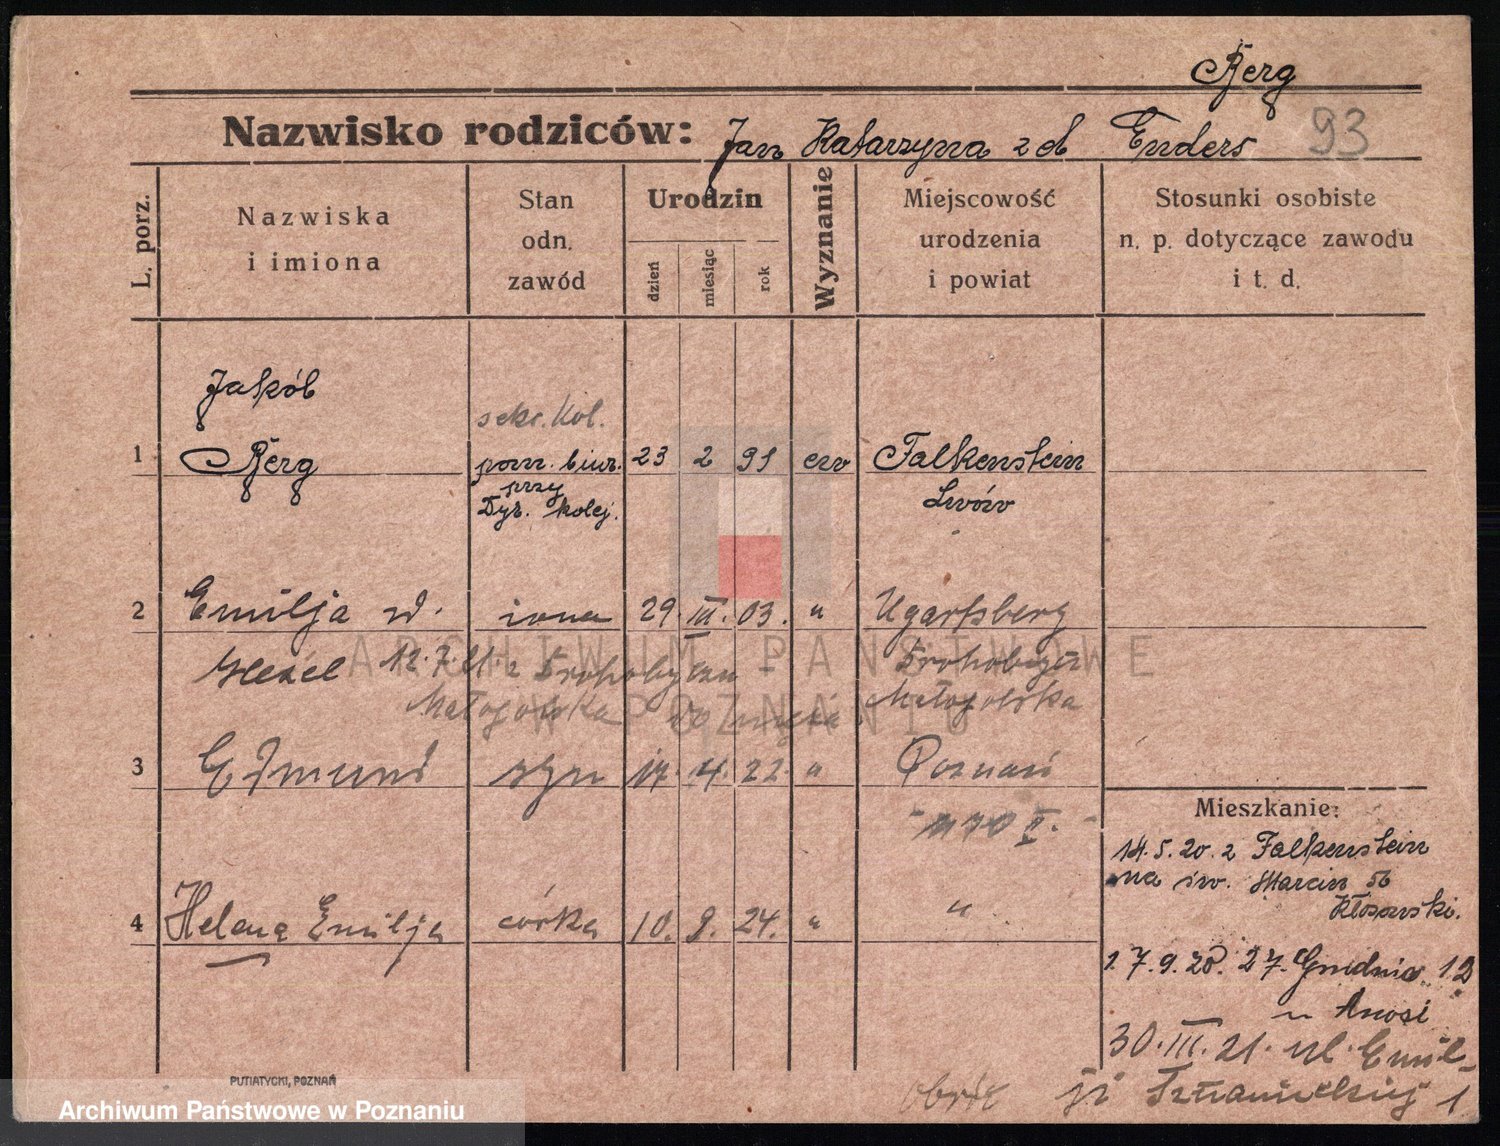 Berg
Nazwisko rodziców: Jan Katarzyna z d Enders 93
L. porz.
Nazwiska
i imiona
Stan
odn.
zawód
Urodzin
dzień
miesiąc
rok
Wyznanie
Miejscowość
urodzenia
i powiat
Stosunki osobiste
n. p. dotyczące zawodu
i t. d.
Jakób
sekr. kol.
1 Berg pom. biur. 23 2 91 ew Falkenstein
przy
Dyr. kolej. Lwów
2 Emilja d. żona 29. III. 03. " Ugartsberg
Hezel 12.7.21. z Drohobycza Drohobycz
Małopolska do męża Małopolska
3 Edmund syn 17. 4. 22. " Poznań
Mieszkanie:
14.5.20. z Falkenstein
na św. Marcin 56
4 Helena Emilja córka 10. 9. 24. " "
17.9.20. 27. Grudnia 12
30.III.21. ul. Emil-
ji Sczanieckiej 1
PUTIATYCKI, POZNAŃ
ARCHIWUM PAŃSTWOWE
W POZNANIU
Archiwum Państwowe w Poznaniu